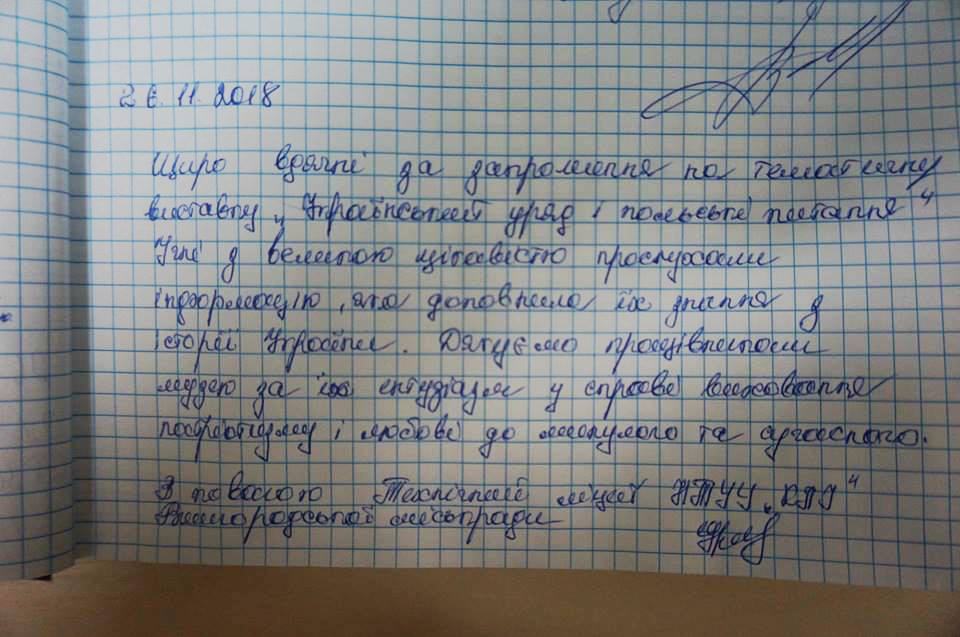 26.11.2018
Щиро вдячні за запрошення на тематичну
виставку „Український уряд і польське питання“
Учні з великою цікавістю прослухали
інформацію, яка доповнила їх знання з
історії України. Дякуємо працівникам
музею за їх ентузіазм у справі виховання
патріотизму і любові до минулого та сучасного.
З повагою Технічний ліцей НТУУ „КПІ“
Вишгородської міськради